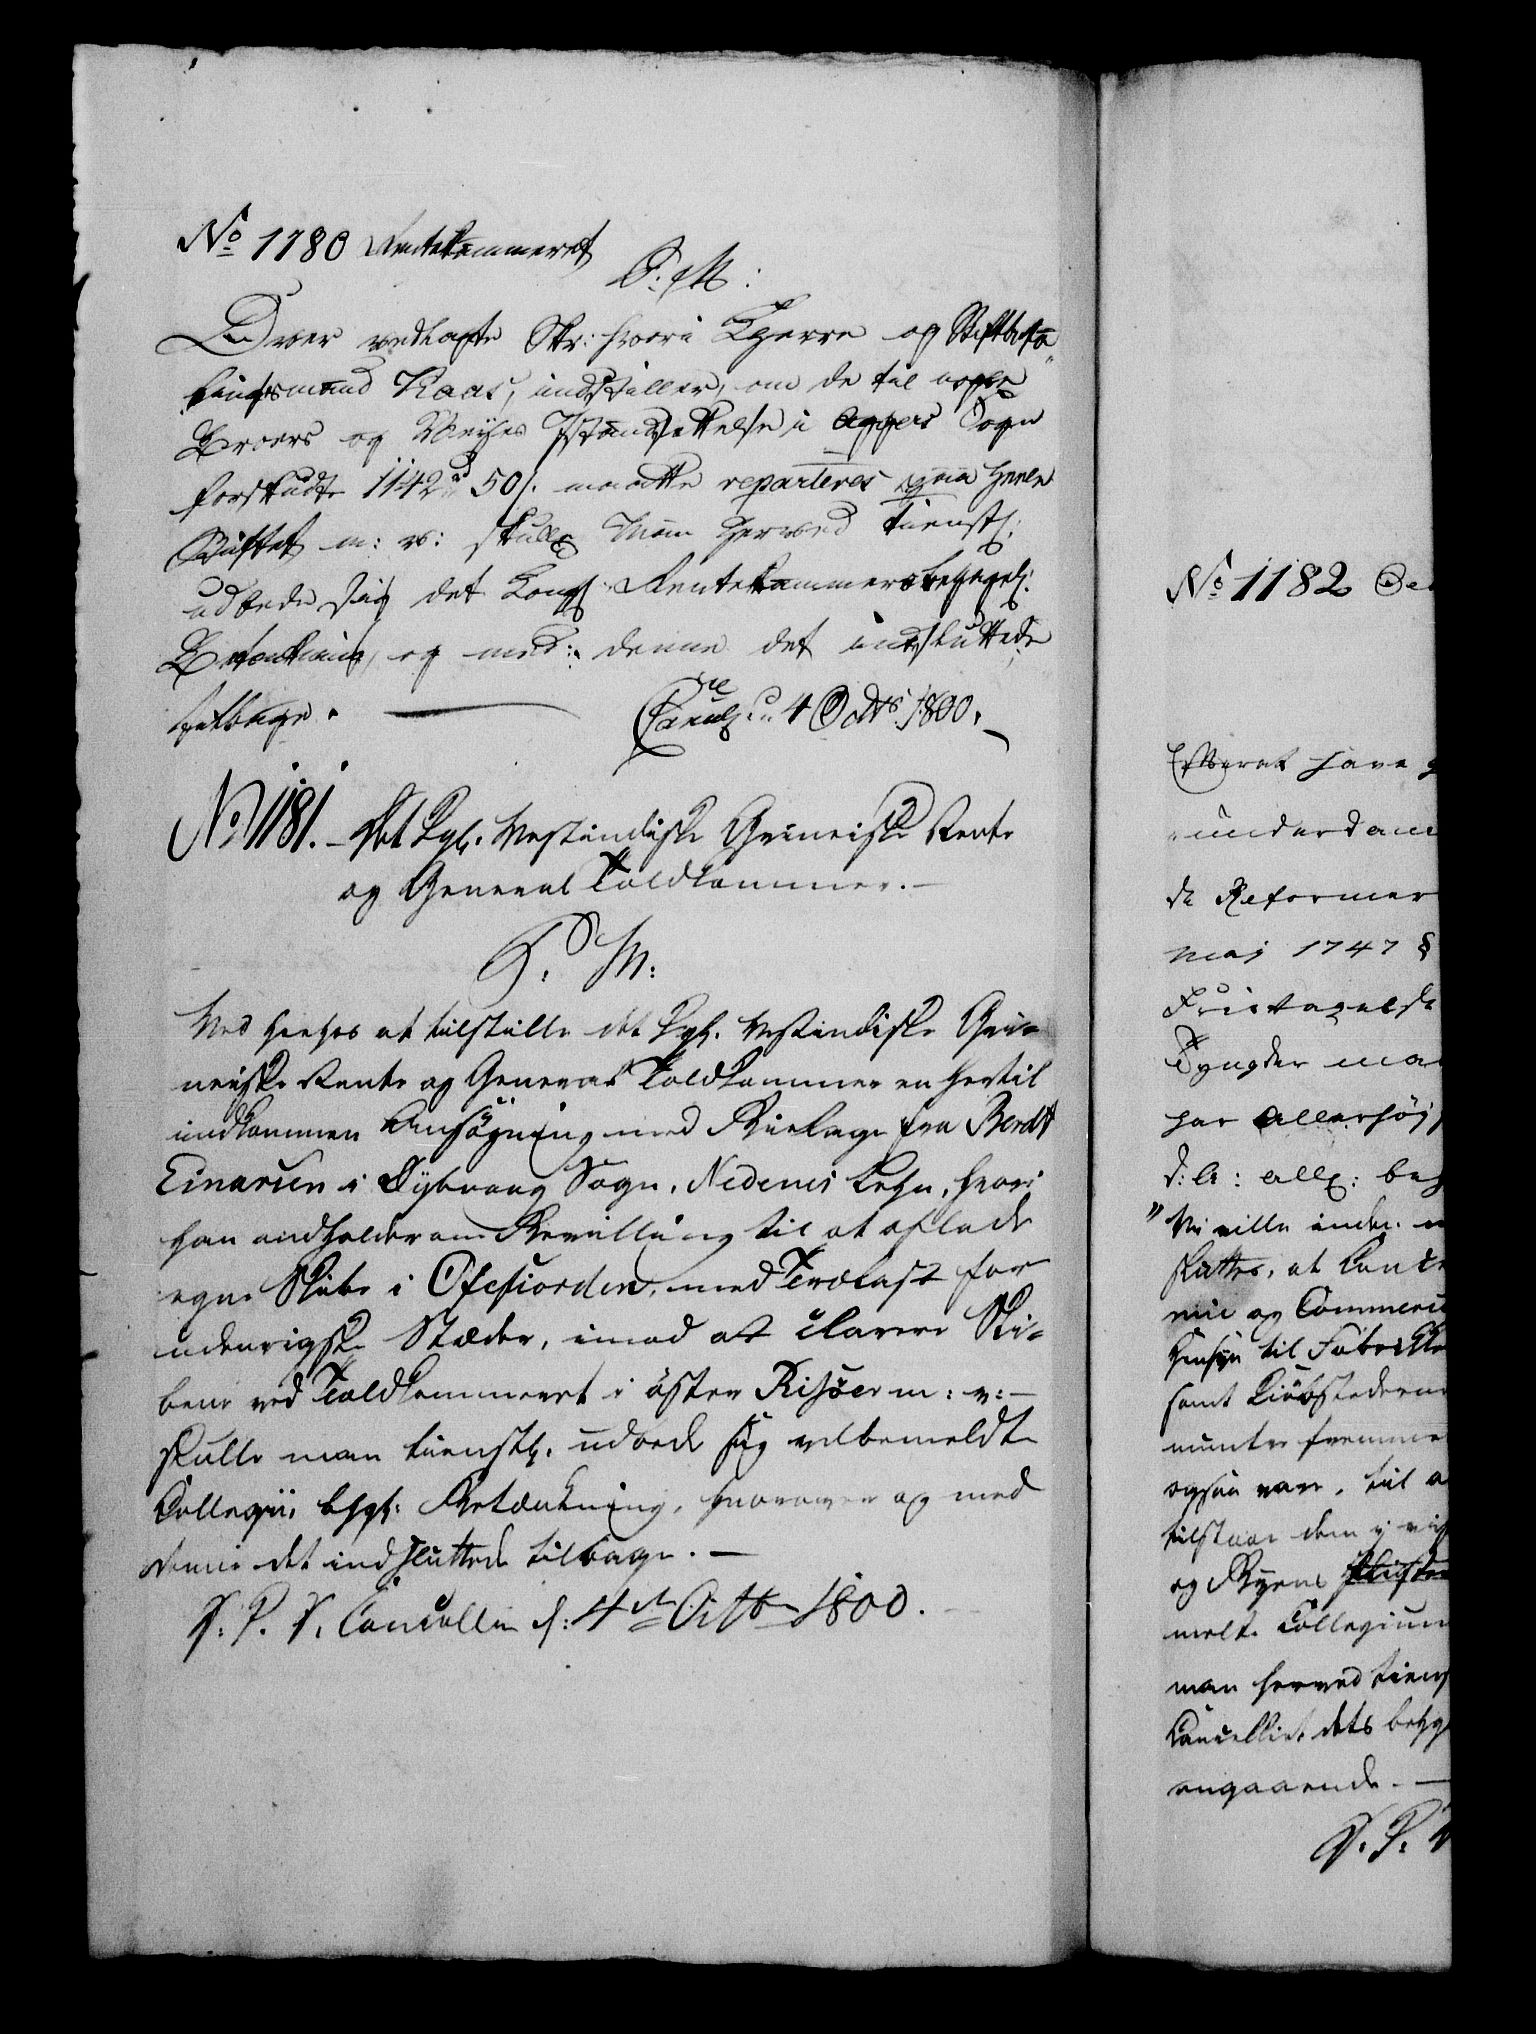 No 1180 Rentekammeret
P: M:
Over vedlagte Skr: hvori Hherre og Stiftbefa
lingsmand Kaas, indstiller, om de til nogle
Broers og Veijes Istandsættelse i Aggers Sogn
forskudte 1142 rd 50 s. maatte reparteres paa heele
Stiftet m: v: skulle Man herved tienstl:
udbede sig det Kongl: Rentekammers behagel:
Betænkning, og med: denne det indsluttede
tilbage.
Cancell: d: 4 Octbr 1800.
No 1181. Det Kgl. Vestindiske Guineiske Rente
og General Toldkammer.
P. M:
Ved hoshos at tilstille det Kgl. Vestindiske Gui-
neiske Rente og General Toldkammer en hertil
indkommen Ansøgning med Bielage fra Berdt
Einarsen i Dybvaag Sogn, Nedenes Lehn, hvori
han andholder om Bevilling til at aflade
egne Skibe i Oxefiorden, med Trælast for
udenrigske Stæder, imod at clarere Ski-
bene ved Toldkammeret i øster Risøer m: v:
skulle man tienstl. udbede sig velbemeldte
Collegii bhgl: Betænkning, hvorover og med
denne det indsluttede tilbage.
D. D. C. Cancellie d: 4de Octbr 1800.
No 1182 Det
Efterat have
underdan
de Reformer
Maj 1747 §
Friitagelse
Tyngder maa
har Allerhøj
d: A: all: beh
" Vi ville inder. 
skattes, at Cance
mie og Commerce
hensyn til Fabrikke
samt Kiøbstædern
munter fremme
ogsaa være, til a
tilstaae dem ij
og Byens
melte Collegium
man herved tienst
Cancelliet dets behg
angaaende.
D. D.